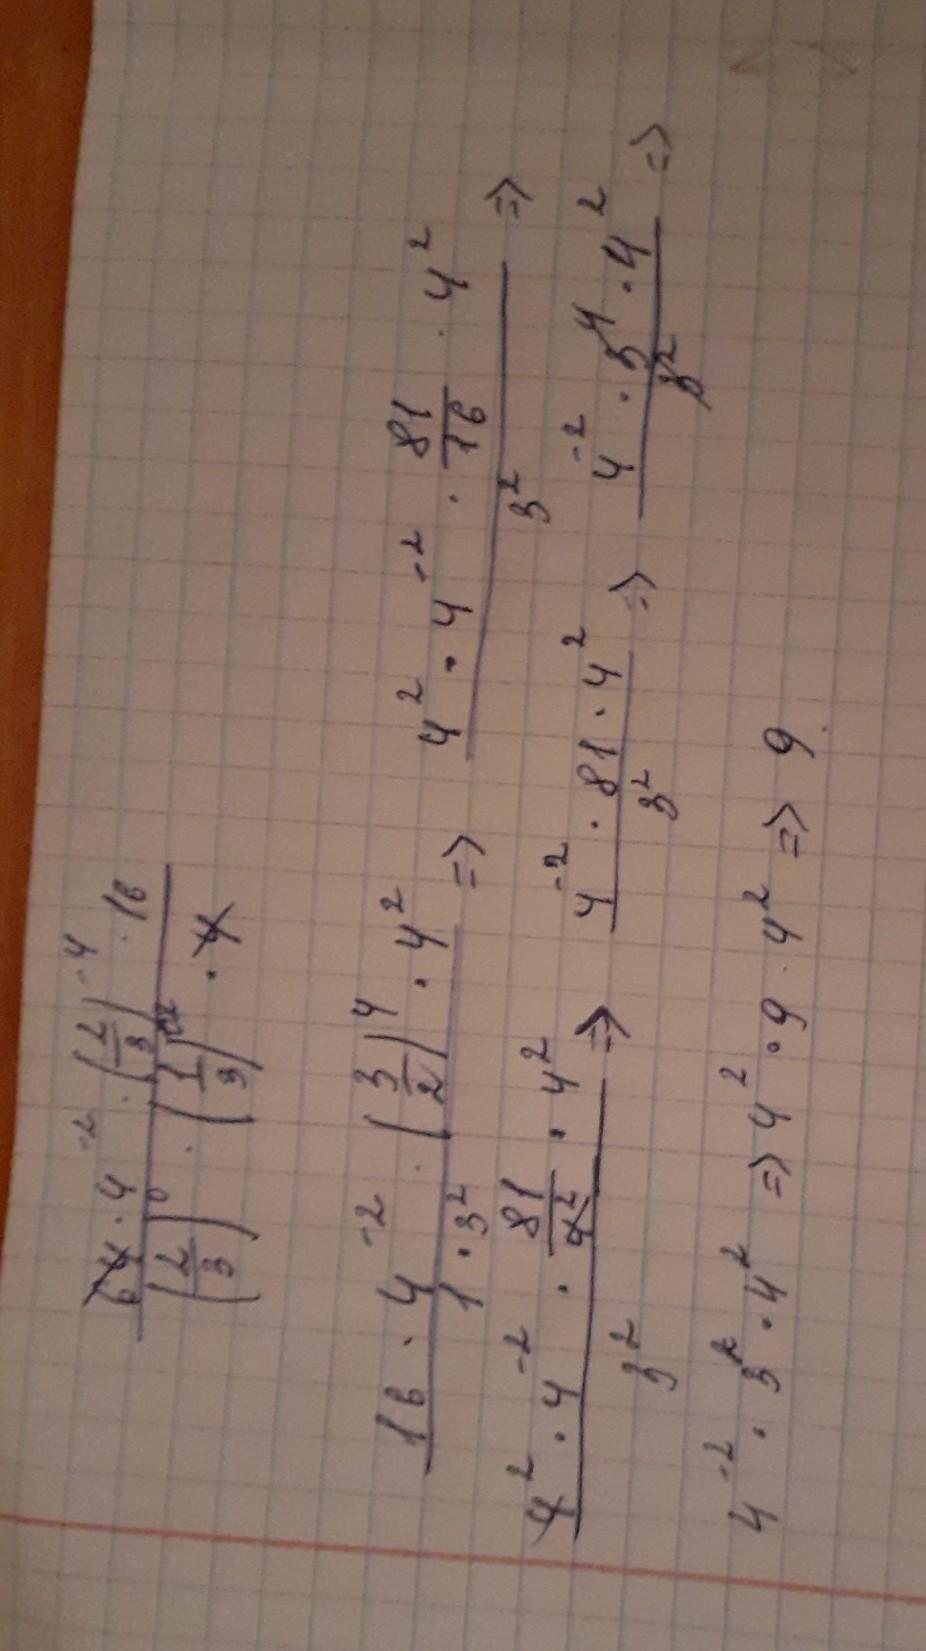 64 · 4^-2 · (2/3)^-4 · 16
(2/3)^0 · (1/3) · 4
16 · 4^-2 · (3/2)^4 · 4^2 => 4^2 · 4^-2 · 81/16 · 4^2 =>
1 · 3^2 3^2
4^2 · 4^-2 · 81/4^2 · 4^2 => 4^-2 · 81 · 4^2 => 4^-2 · 3^4 · 4^2 =>
3^2 3^2 3^2
4^-2 · 3^2 · 4^2 => 4^2 · 9 · 4^2 => 9